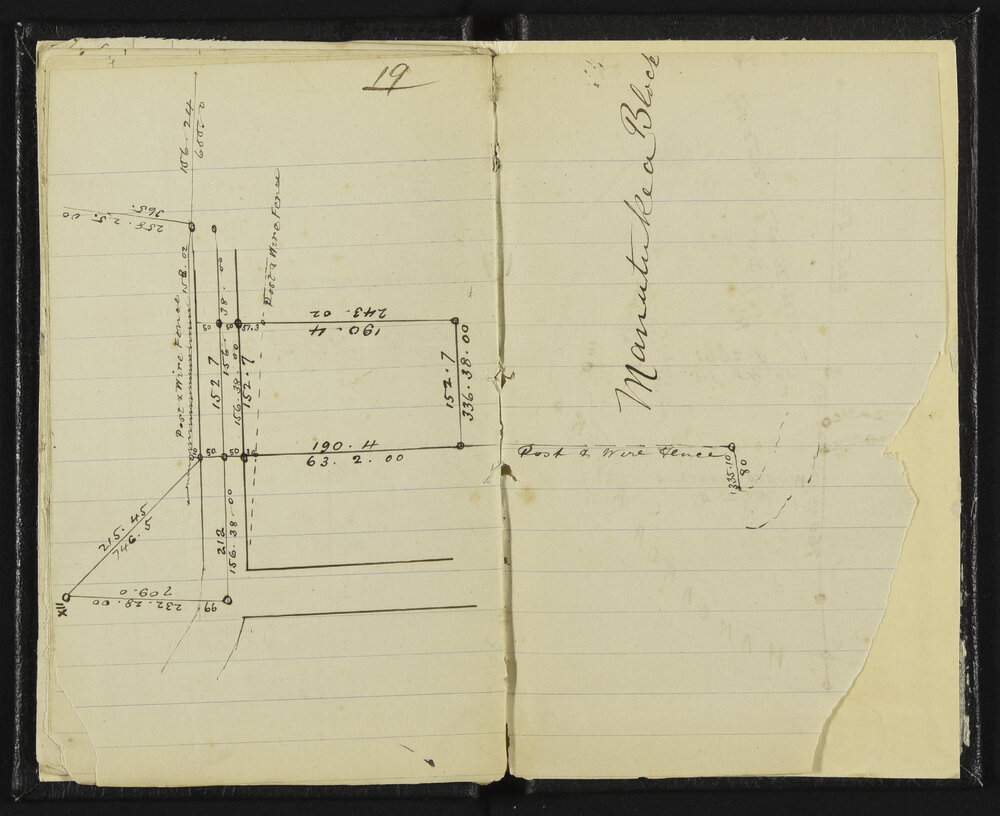 19
156. 24
6550
258. 25. 00
365.
Post & Wire Fence
158. 02
Post & Wire Fence
38. 00
243. 02
190. 4
152 7
156.
156. 38. 00
152. 7
152. 7
336. 38. 00
190. 4
63. 2. 00
215. 45
746. 5
212
156. 38. 00
XII
709. 0
232. 28. 00
99.
Manutukea Block
Post & Wire Fence
335. 10
80